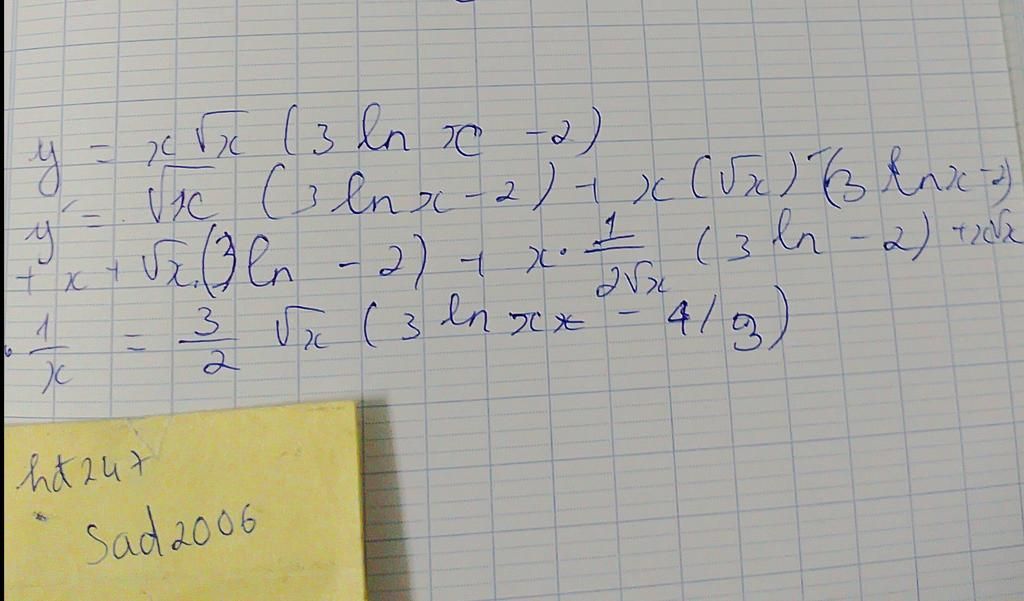 y = x√x (3 ln x - 2)
y' = √x (3 ln x - 2) + x (√x)' (3 ln x - 2)
+ x + √x.(3 ln - 2) + x · 1/2√x (3 ln - 2) + x√x
. 1/x = 3/2 √x (3 ln xx - 4/3)
ht247
Sad2006